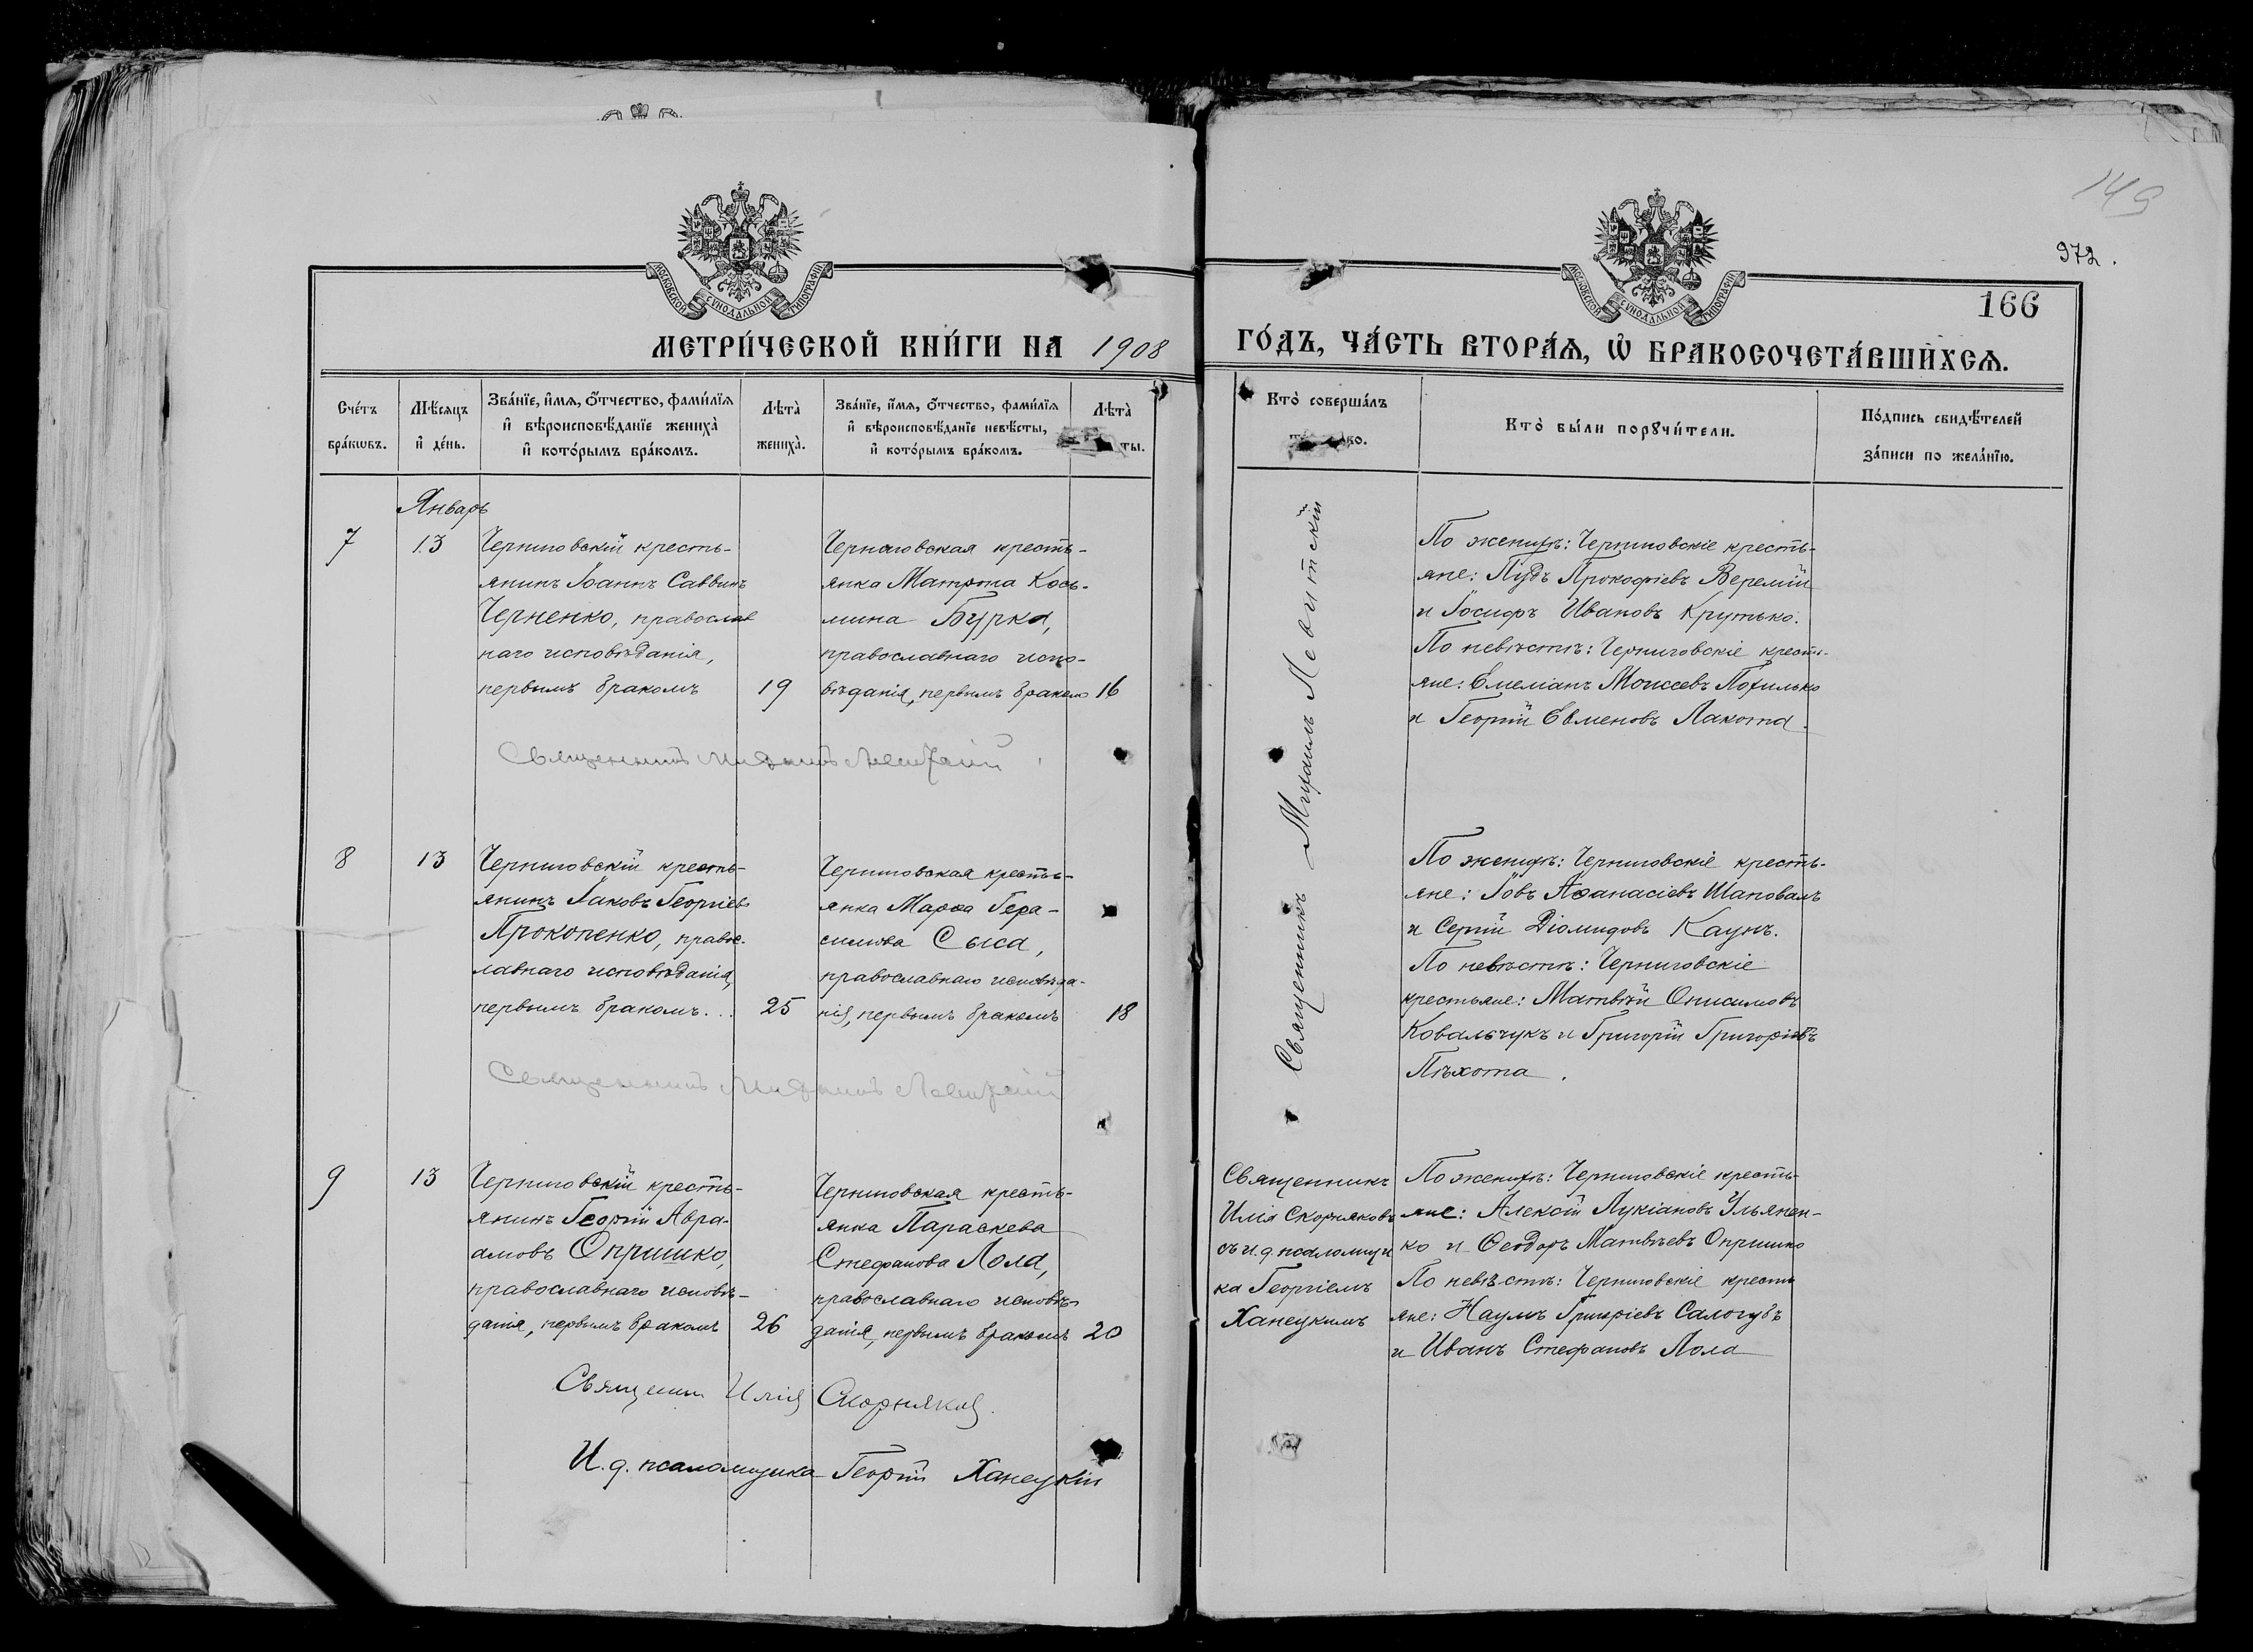 149
972.
166
МОСКОВСКОЙ СУНОДАЛЬНОЙ ТИПОГРАФІИ
МОСКОВСКОЙ СУНОДАЛЬНОЙ ТИПОГРАФІИ
МЕТРИ́ЧЕСКОЙ КНИ́ГИ НА 1908 ГО́ДЪ, ЧА́СТЬ ВТОРА́Ѧ, Ѽ БРАКОСОЧЕТА́ВШИХСѦ.
Счéтъ
брáкѡвъ.
Мѣ́сѧцъ
и҆ дéнь.
Звáнїе, и҆́мѧ, ѻ҆́тчество, фамѝлїѧ
и҆ вѣроисповѣ́данїе женихà
и҆ котóрымъ брáкомъ.
Лѣтà
женихà.
Звáнїе, и҆́мѧ, ѻ҆́тчество, фамѝлїѧ
и҆ вѣроисповѣ́данїе невѣ́сты,
и҆ котóрымъ брáкомъ.
Лѣтà
ты.
Ктò совершáлъ
Ктò бы́ли порꙋчи́тели.
Пóдпись свидѣ́телей
зáписи по желáнїю.
Январь
7
13
Черниговскій кресть-
янинъ Іоаннъ Саввинъ
Черненко, православ
наго исповѣданія,
первымъ бракомъ
19
Черниговская кресть-
янка Матрона Кось-
мина Бурка,
православнаго испо-
вѣданія, первымъ бракомъ
16
Священникъ Михаилъ Левитскій
Священникъ Михаилъ Левитскій
По женихѣ: Черниговскіе кресть-
яне: Пудъ Прокофіевъ Веремій
и Іосифъ Ивановъ Крутько.
По невѣстѣ: Черниговскіе кресть-
яне: Емеліанъ Моисеевъ Похилько
и Георгій Евменовъ Лакота.
8
13
Черниговскій кресть-
янинъ Іаковъ Георгіев
Прокопенко, правос-
лавнаго исповѣданія,
первымъ бракомъ...
25
Черниговская кресть-
янка Марѳа Гера-
симова Сыса,
православнаго исповѣда-
нія, первымъ бракомъ
18
Священникъ Михаилъ Левитскій
По женихѣ: Черниговскіе кресть-
яне: Іовъ Аѳанасіевъ Шаповалъ
и Сергій Діомидовъ Каунъ.
По невѣстѣ: Черниговскіе
крестьяне: Матвѣй Онисимовъ
Ковальчукъ и Григорій Григоріевъ
Пѣхота.
9
13
Черниговскій кресть-
янинъ Георгій Авра-
амовъ Опришко,
православнаго исповѣ-
данія, первымъ бракомъ
26
Черниговская кресть-
янка Параскева
Стефанова Лола,
православнаго исповѣ-
данія, первымъ бракомъ
20
Священникъ
Илія Скорняковъ
съ и. д. псаломщи
ка Георгіемъ
Ханецкимъ
По женихѣ: Черниговскіе кресть-
яне: Алексій Лукіановъ Ульянен-
ко и Ѳеодоръ Матвѣевъ Опришко
По невѣстѣ: Черниговскіе кресть
яне: Наумъ Григоріевъ Салогубъ
и Иванъ Стефановъ Лола
Священни Илія Скорняков.
И. д. псаломщика Георгій Ханецкій